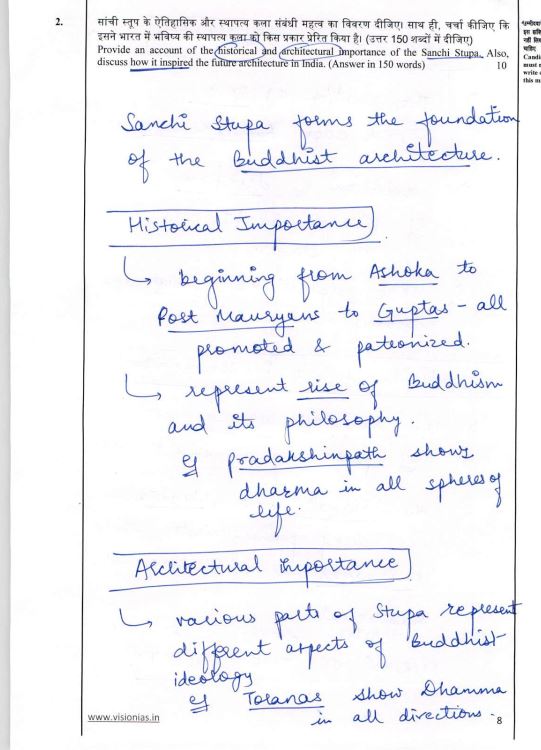 2. सांची स्तूप के ऐतिहासिक और स्थापत्य कला संबंधी महत्व का विवरण दीजिए। साथ ही, चर्चा कीजिए कि
इसने भारत में भविष्य की स्थापत्य कला को किस प्रकार प्रेरित किया है। (उत्तर 150 शब्दों में दीजिए)
Provide an account of the historical and architectural importance of the Sanchi Stupa. Also,
discuss how it inspired the future architecture in India. (Answer in 150 words) 10
Sanchi Stupa forms the foundation
of the Buddhist architecture.
Historical Importance
beginning from Ashoka to
Post Mauryans to Guptas - all
promoted & patronized.
represent rise of Buddhism
and its philosophy.
eg pradakshinpath shows
dharma in all spheres of
life.
Architectural importance
various parts of Stupa represent
different aspects of Buddhist
ideology
eg Toranas show Dhamma
in all directions.
www.visionias.in
8